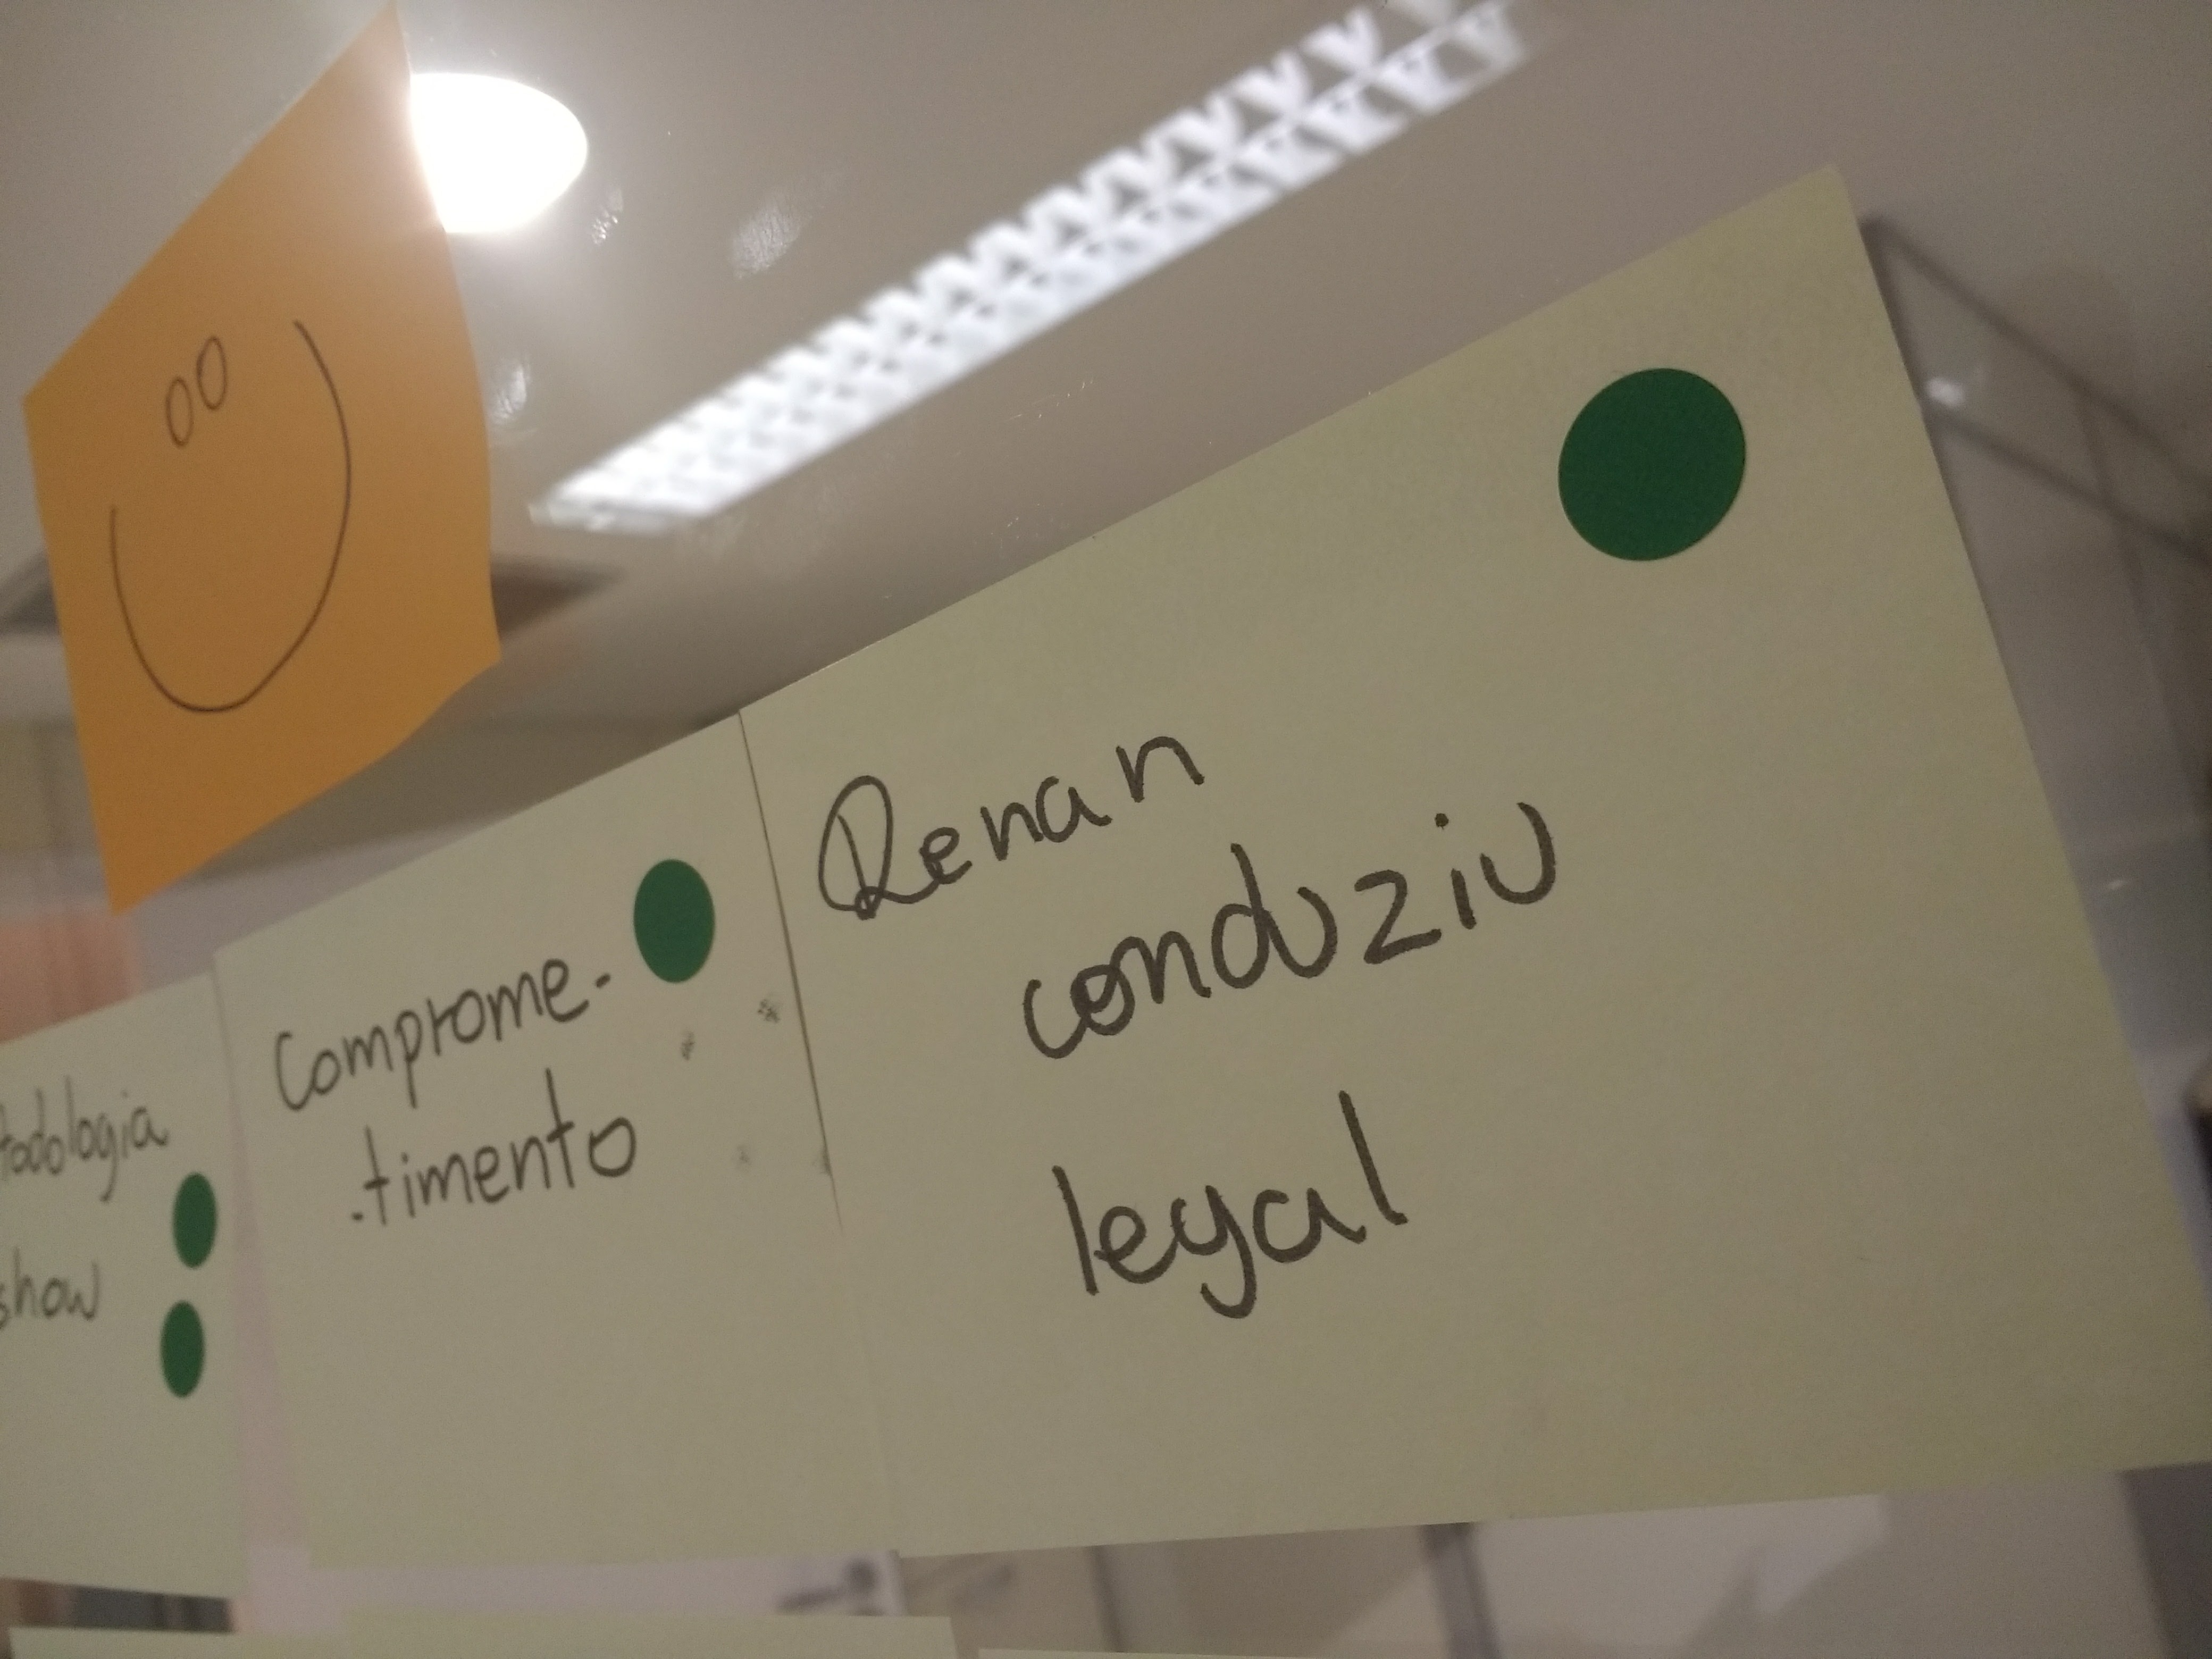 todologia
show
Comprome-
-timento
Renan
conduziu
legal